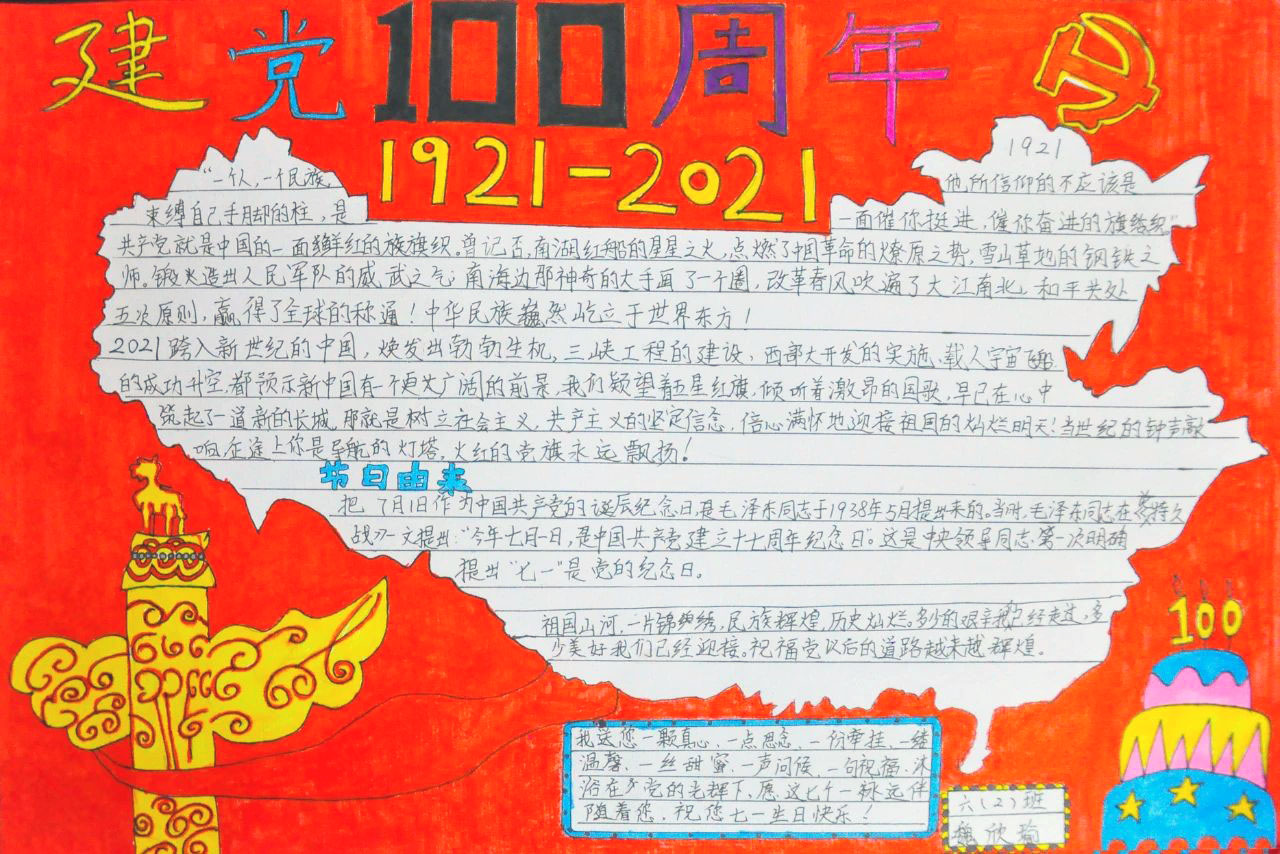 建党100周年
1921-2021
1921
"一个人,一个民族 他所信仰的不应该是
束缚自己手脚的柱,是 一面催你挺进,催你奋进的旗帜"
共产党就是中国的一面鲜红的旗帜。曾记否,南湖红船的星星之火,点燃了中国革命的燎原之势,雪山草地的钢铁之
师。锻火造出人民军队的威武之气;南海边那神奇的大手画了一个圈,改革春风吹遍了大江南北,和平共处
五次原则,赢得了全球的称通!中华民族巍然屹立于世界东方!
2021跨入新世纪的中国,焕发出勃勃生机,三峡工程的建设、西部大开发的实施、载人宇宙飞船
的成功升空,都预示新中国有一个更大广阔的前景,我们凝望着五星红旗,倾听着激昂的国歌,早已在心中
筑起了一道新的长城,那就是树立社会主义,共产主义的坚定信念,信心满怀地迎接祖国的灿烂明天!当世纪的钟声敲
响,征途上你是导航的灯塔,火红的党旗永远飘扬!
节日由来
把7月1日作为中国共产党的诞辰纪念日,是毛泽东同志于1938年5月提出来的。当时,毛泽东同志在 持久
战 一文提出:"今年七月一日,是中国共产党建立十七周年纪念日。"这是中央领导同志第一次明确
提出"七一"是党的纪念日。
祖国山河,一片锦绣,民族辉煌,历史灿烂,多少的艰辛我已经走过,多
少美好我们已经迎接。祝福党以后的道路越来越辉煌。
我送您一颗真心,一点思念,一份牵挂,一缕
温馨、一丝甜蜜、一声问候、一句祝福。沐
浴在 党的光辉下,愿这七一永远伴
随着您,祝您七一生日快乐!
六(2)班
魏欣瑜
100